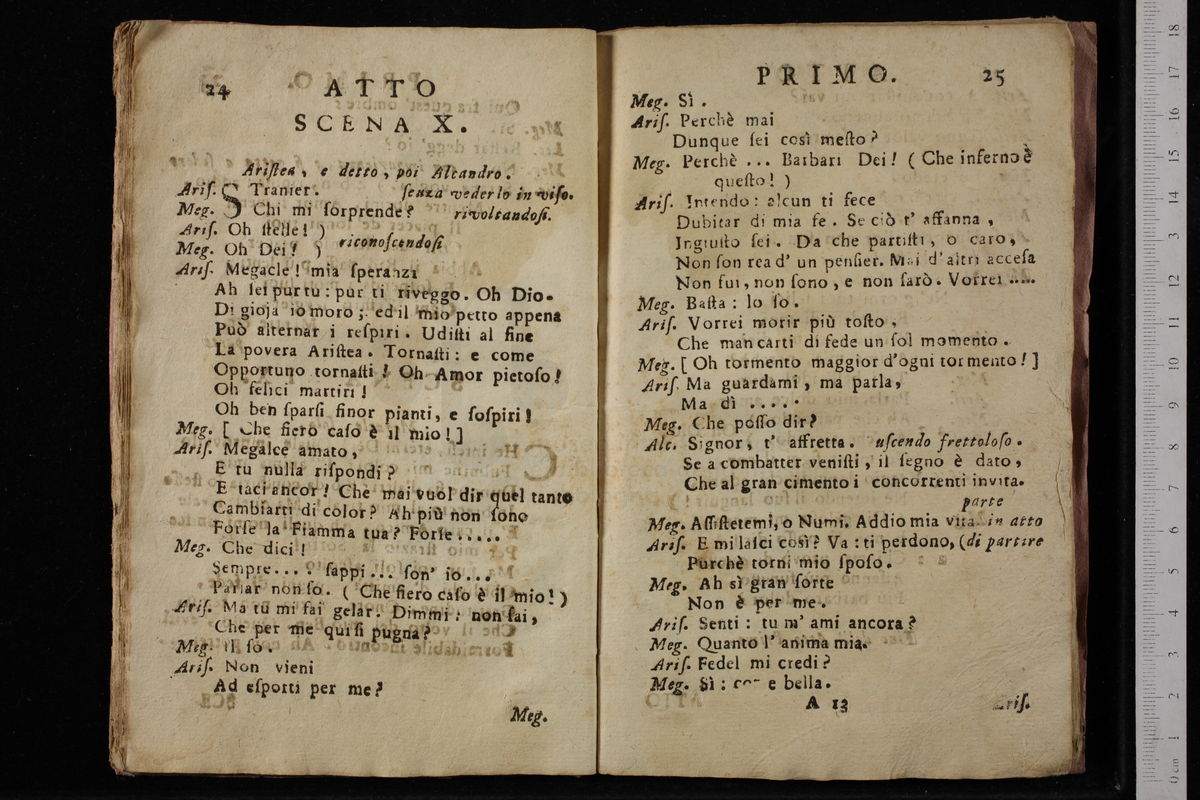 24 ATTO
SCENA X.
Ariſtea, e detto, poi Alcandro.
Ariſ. STranier. ſenza vederlo in viſo.
Meg. Chi mi ſorprende? rivoltandoſi.
Ariſ. Oh ſtelle! )
Meg. Oh Dei! ) riconoſcendoſi
Ariſ. Megacle! mia ſperanza
Ah ſei pur tu: pur ti riveggo. Oh Dio.
Di gioja io moro; ed il mio petto appena
Può alternar i reſpiri. Udiſti al fine
La povera Ariſtea. Tornaſti: e come
Opportuno tornaſti! Oh Amor pietoſo!
Oh felici martiri!
Oh ben ſparſi finor pianti, e ſoſpiri!
Meg. [ Che fiero caſo è il mio! ]
Ariſ. Megalce amato,
E tu nulla riſpondi?
E taci ancor! Che mai vuol dir quel tanto
Cambiarti di color? Ah più non ſono
Forſe la Fiamma tua? Forſe.....
Meg. Che dici!
Sempre.... ſappi... ſon' io...
Parlar non ſo. ( Che fiero caſo è il mio! )
Ariſ. Ma tu mi fai gelar. Dimmi: non ſai,
Che per me qui ſi pugna?
Meg. Il ſo.
Ariſ. Non vieni
Ad eſporti per me?
Meg.
PRIMO. 25
Meg. Sì.
Ariſ. Perchè mai
Dunque ſei così meſto?
Meg. Perchè ... Barbari Dei! ( Che inferno è
queſto! )
Ariſ. Intendo: alcun ti fece
Dubitar di mia fe. Se ciò t' affanna,
Ingiuſto ſei. Da che partiſti, o caro,
Non ſon rea d' un penſier. Mai d'altri acceſa
Non fui, non ſono, e non ſarò. Vorrei .....
Meg. Baſta: lo ſo.
Ariſ. Vorrei morir più toſto,
Che mancarti di fede un ſol momento.
Meg. [ Oh tormento maggior d'ogni tormento! ]
Ariſ. Ma guardami, ma parla,
Ma dì .....
Meg. Che poſſo dir?
Alc. Signor, t' affretta. uſcendo frettoloſo.
Se a combatter veniſti, il ſegno è dato,
Che al gran cimento i concorrenti invita.
parte
Meg. Aſſiſtetemi, o Numi. Addio mia vita. in atto
Ariſ. E mi laſci così? Va: ti perdono, (di partire
Purchè torni mio ſpoſo.
Meg. Ah sì gran ſorte
Non è per me.
Ariſ. Senti: tu m' ami ancora?
Meg. Quanto l' anima mia.
Ariſ. Fedel mi credi?
Meg. Sì: e bella.
A 13 Ariſ.